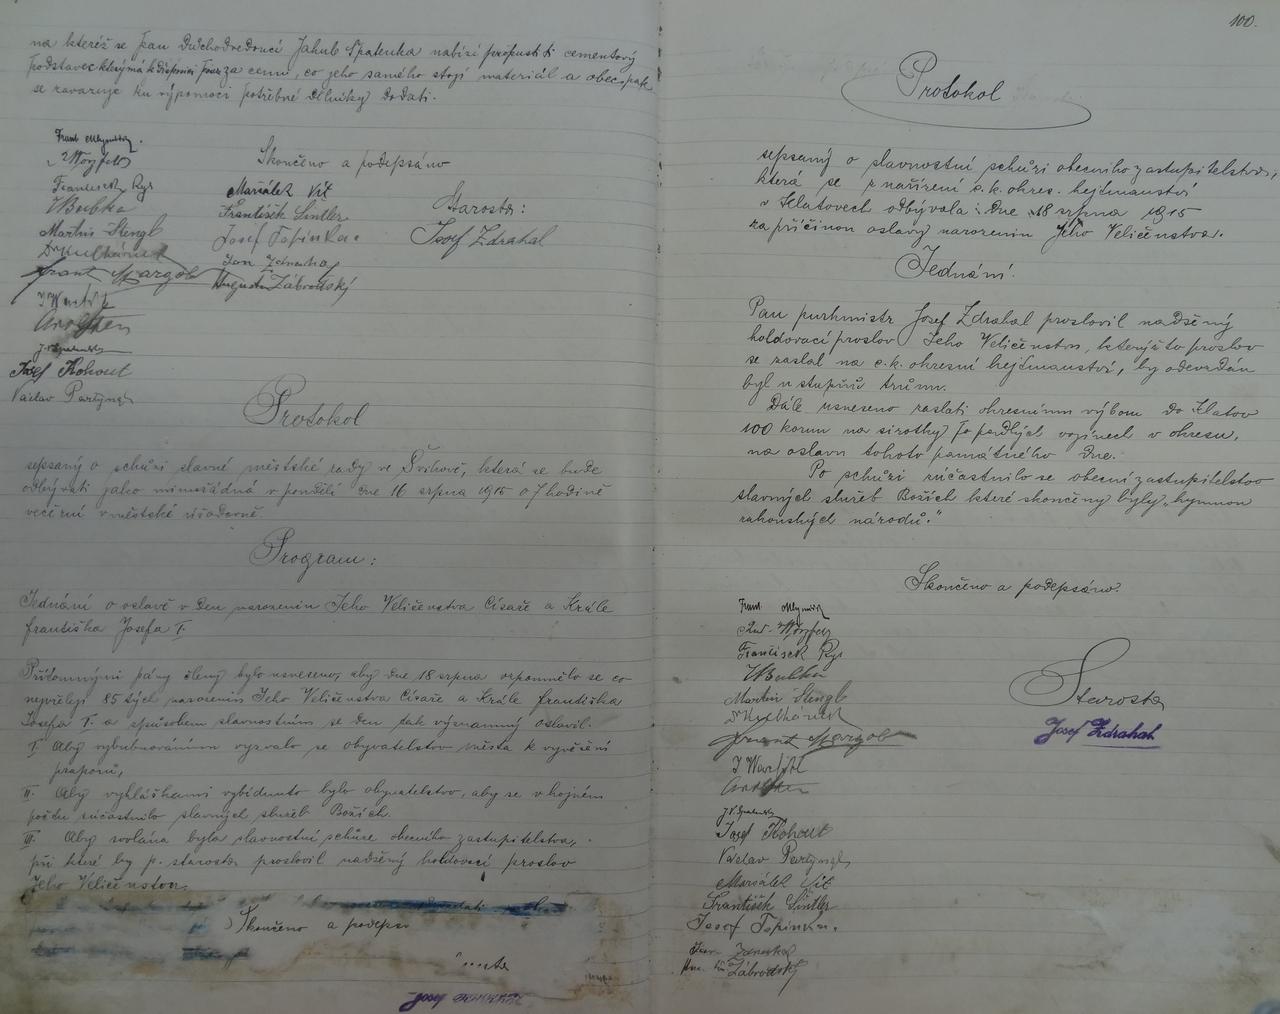 na kteréž se pan Duchodvedoucí Jakub Spalenka nabízí propustiti cementový
podstavec který má k disposici pouze za cenu, co jeho samého stojí materiál a obec pak
se zavazuje ku výpomoci potřebné dělníky dodati.
Skončeno a podepsáno
Frant.
Francisek Rys
VBubka
Martin Stengl
Frant Margold
Josef Kohout
Václav
Maršálek Vít
František Sintler
Josef Topinka.
Jan
Augustin Zábrodský
Starosta:
Josef Zdrahal
Protokol
sepsaný o schůzi slavné městské rady ve Švihově, která se bude
odbývati jako mimořádná v pondělí dne 16 srpna 1915 o 7 hodině
večerní v městské úřadovně.
Program:
Jednání o oslavě v den narozenin Jeho Veličenstva Císaře a Krále
františka Josefa I.
Přítomnými pány členy bylo usneseno, aby dne 18 srpna vzpomnělo se co
nejvřeleji 85 tých narozenin Jeho Veličenstva Císaře a Krále františka
Josefa I. a způsobem slavnostním se den tak významný oslavil.
I. Aby vybubnováním vyzvalo se obyvatelstvo města k vyvěšení
praporů,
II. Aby vyhláškami vybídnuto bylo obyvatelstvo, aby se v hojném
počtu súčastnilo slavných služeb Božích.
III. Aby svolána byla slavnostní schůze obecního zastupitelstva,
při které by p. starosta proslovil nadšený holdovací proslov
Jeho Veličenstvu.
Skončeno a podepsáno
Josef
100.
Protokol
sepsaný o slavnostní schůzi obecního zastupitelstva,
která se z nařízení c. k. okres. hejtmanství
v Klatovech odbývala dne 18 srpna 1915
za příčinou oslavy narozenin Jeho Veličenstva.
Jednání.
Pan purkmistr Josef Zdrahal proslovil nadšený
holdovací proslov Jeho Veličenstvu, kterýžto proslov
se zaslal na c. k. okresní hejtmanství, by odevzdán
byl u stupňů trůnu.
Dále usneseno zaslati okresnímu výboru do Klatov
100 korun na sirotky po padlých vojínech v okresu,
na oslavu tohoto památného dne.
Po schůzi súčastnilo se obecní zastupitelstvo
slavných služeb Božích které skončeny byly „hymnou
rakouských národů."
Skončeno a podepsáno.
Frant.
Francisek Rys
VBubka
Martin Stengl
Frant Margold
Josef Kohout
Václav
Maršálek Vít
František Sintler
Josef Topinka.
Jan
Zábrodský
Starosta
Josef Zdrahal